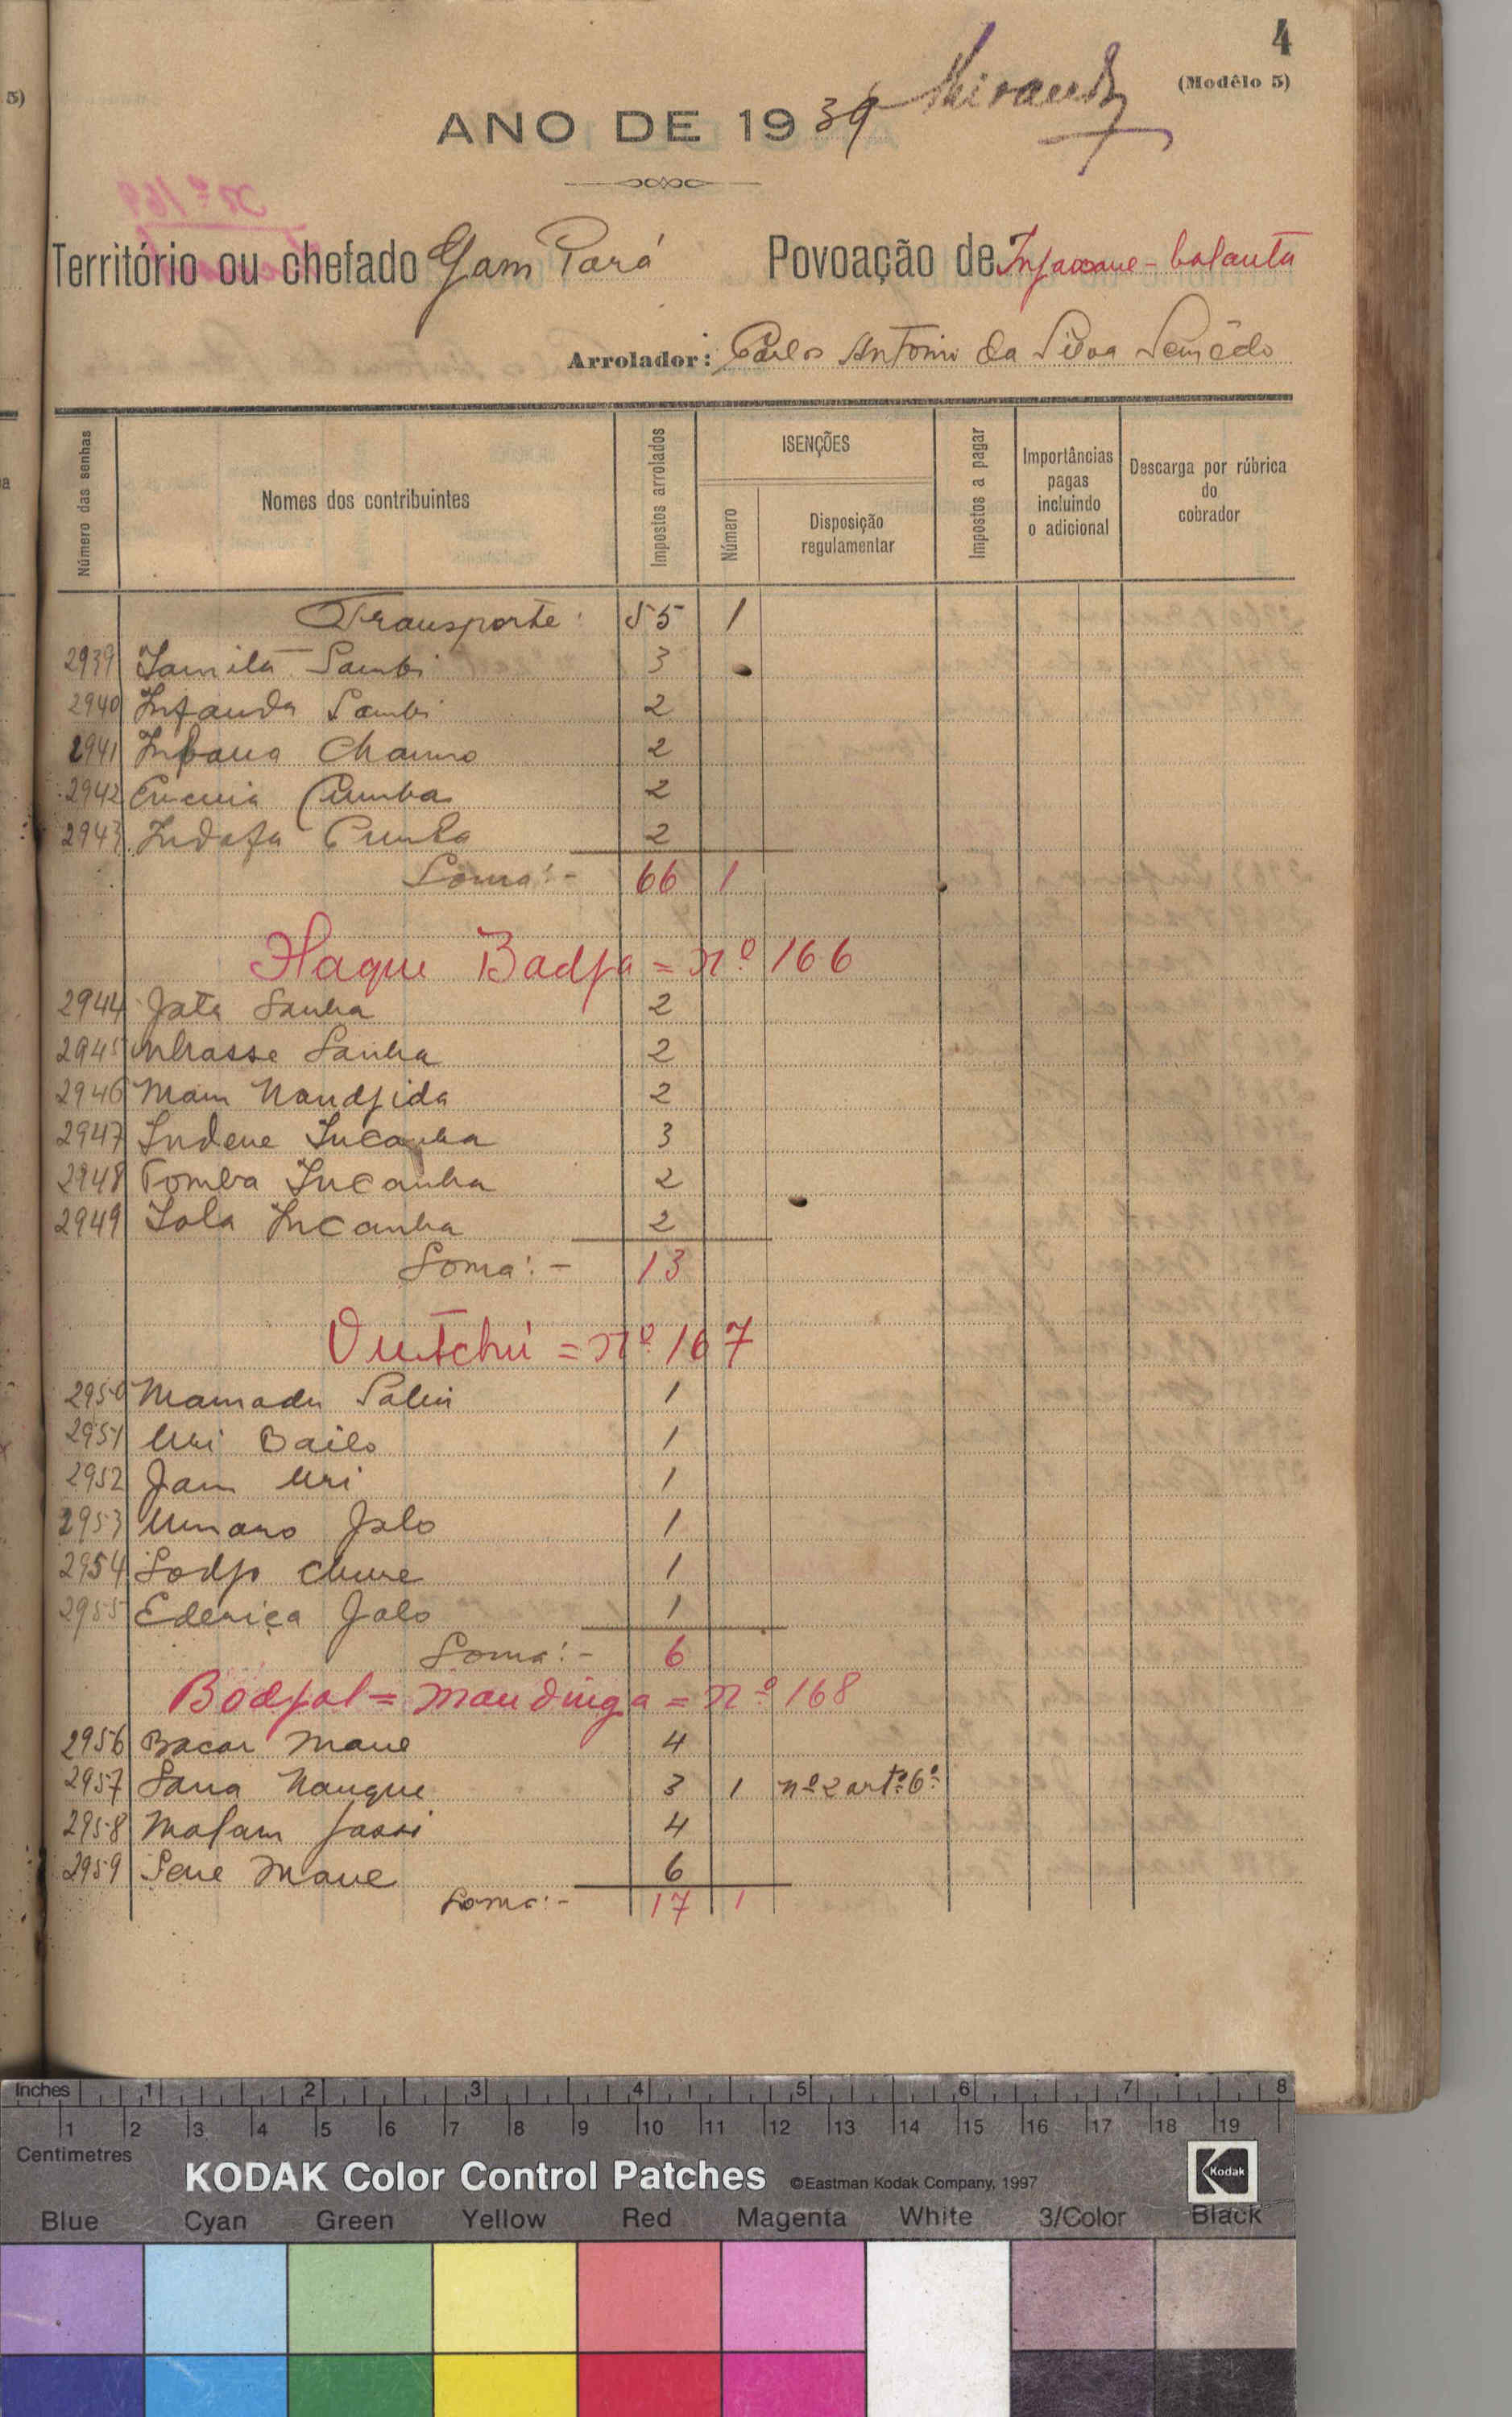 4
(Modêlo 5)
ANO DE 1939
Território ou chefado Gam Pará Povoação de balanta
Arrolador: Carlos Antonio da Silva Semêdo
Número das senhas
Nomes dos contribuintes
Impostos arrolados
ISENÇÕES
Número
Disposição
regulamentar
Impostos a pagar
Importâncias
pagas
incluindo
o adicional
Descarga por rúbrica
do
cobrador
Transporte: 55 1
2939 Sambi 3
2940 Infanda Sambi 2
2941 2
2942 Cumba 2
2943 Indafa Cumba 2
Soma:- 66 1
Flaque Badja = nº 166
2944 Jata Sanha 2
2945 Sanha 2
2946 Mam Nandjida 2
2947 Indene Incanha 3
2948 Tomba Incanha 2
2949 Iola Incanha 2
Soma:- 13
= nº 167
2950 Mamadu Saliu 1
2951 Uri Bailo 1
2952 Jam Uri 1
2953 Umaro Jalo 1
2954 Sodjo 1
2955 Ederiça Jalo 1
Soma:- 6
Bodjol = mandinga = nº 168
2956 Bacar Mane 4
2957 Sana Nanque 3 1 nº 2 artº 6º
2958 Malam Jassi 4
2959 Sene Mane 6
Soma:- 17 1
Inches 1 2 3 4 5 6 7 8
1 2 3 4 5 6 7 8 9 10 11 12 13 14 15 16 17 18 19
Centimetres
KODAK Color Control Patches ©Eastman Kodak Company, 1997 Kodak
Blue Cyan Green Yellow Red Magenta White 3/Color Black